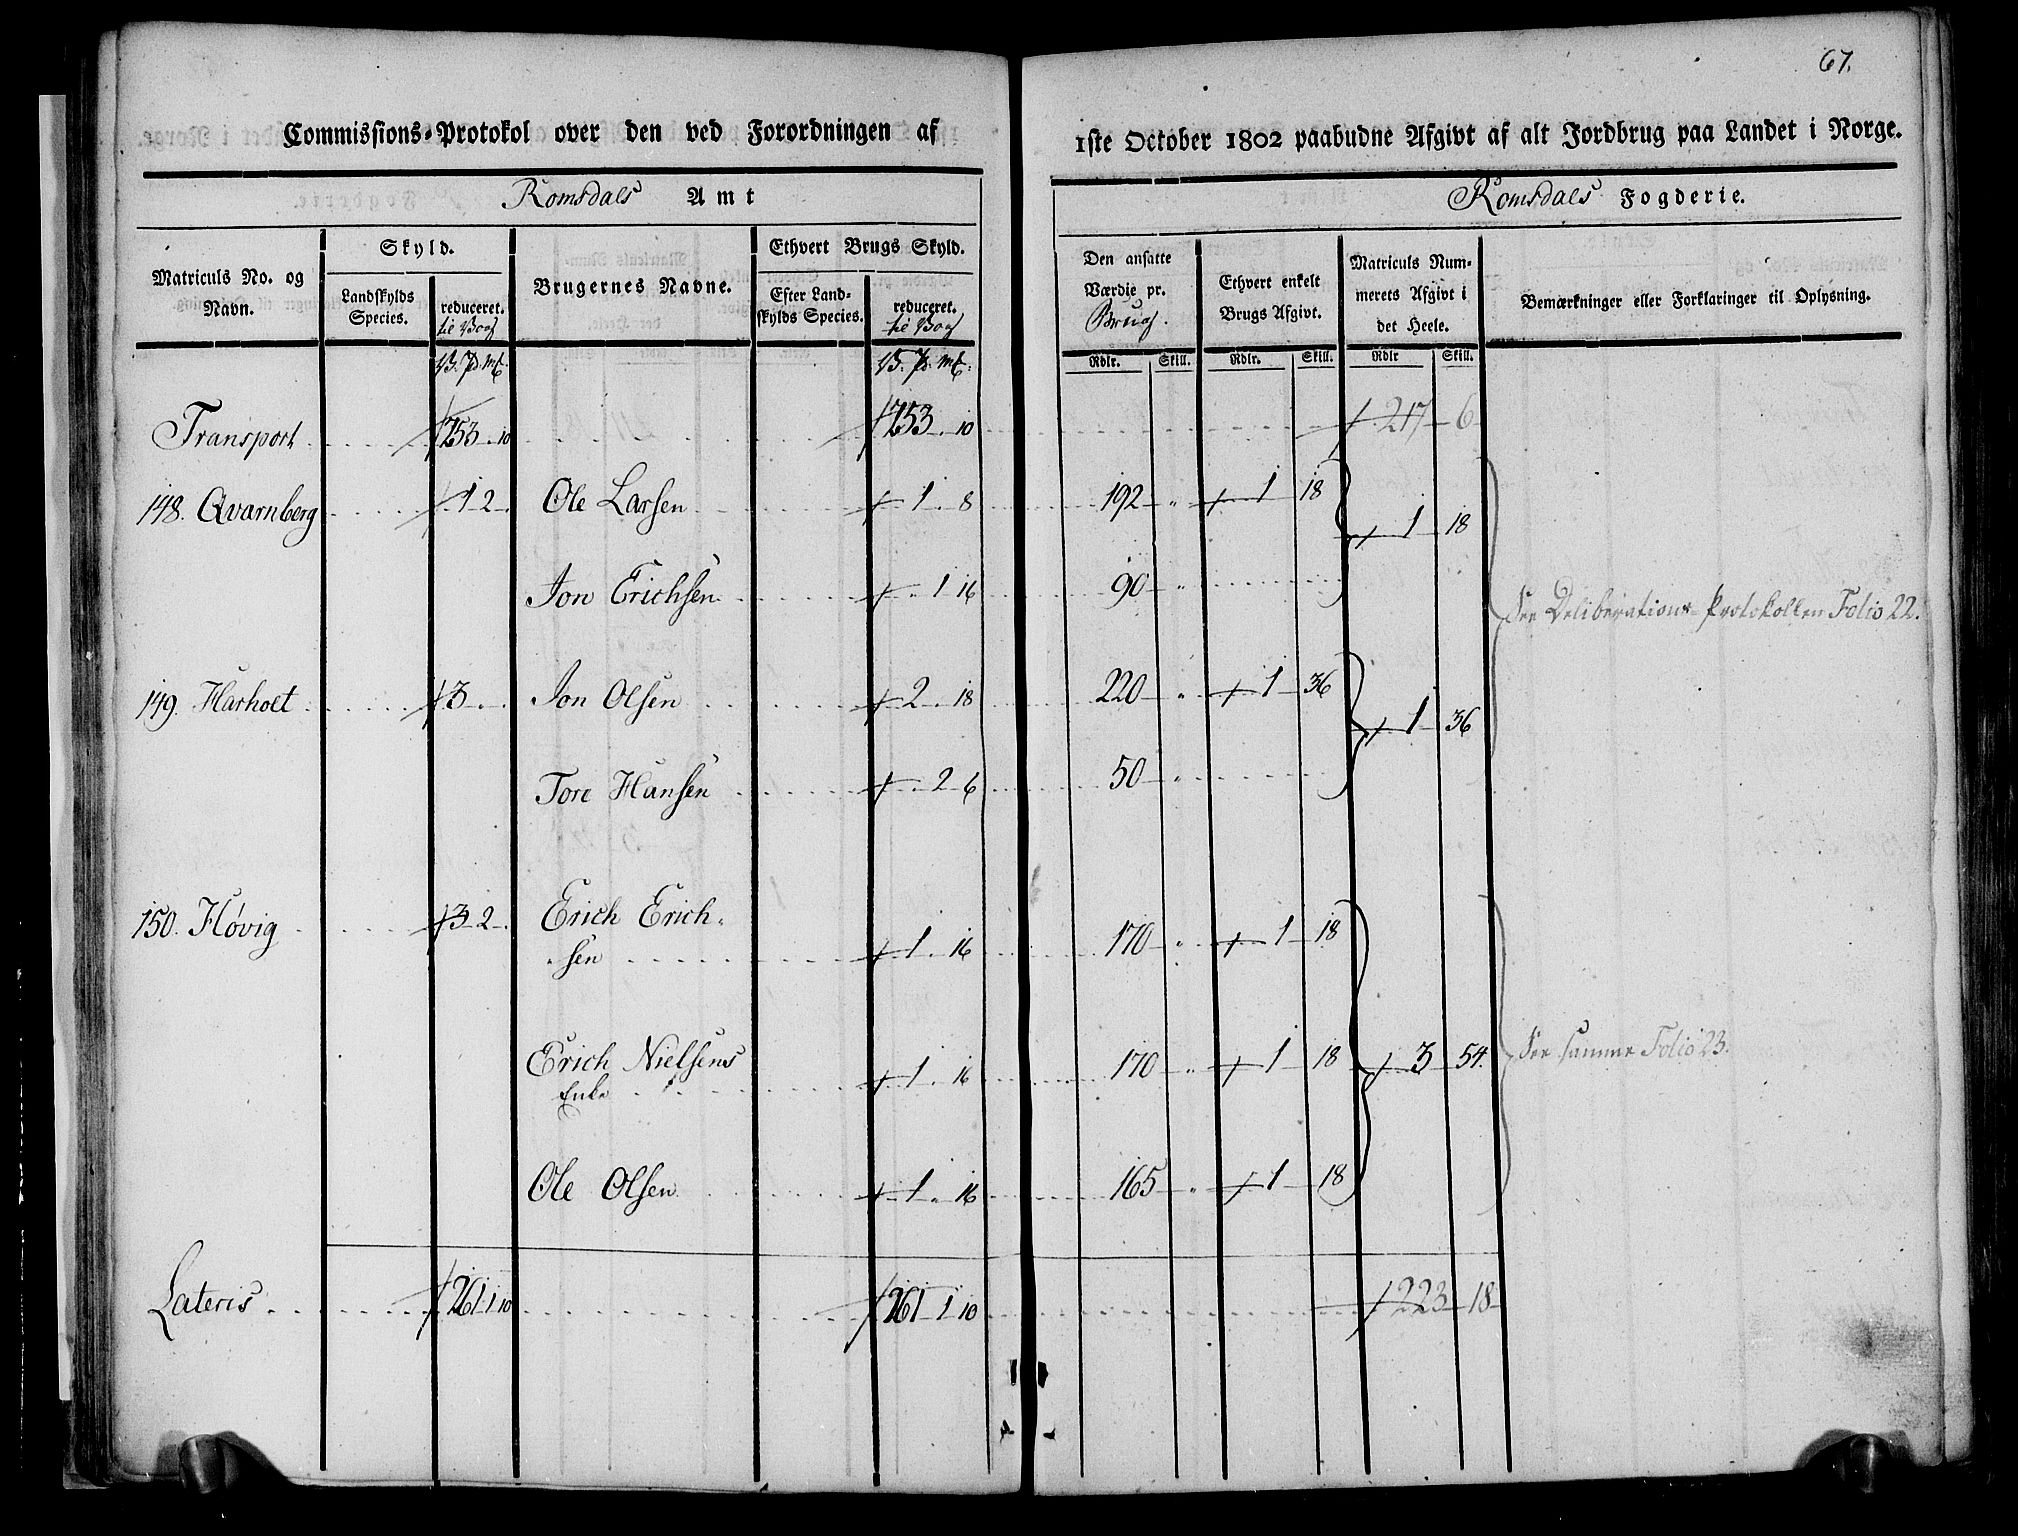 67.
Commissions-Protokol over den ved Forordningen af 1ste October 1802 paabudne Afgivt af alt Jordbrug paa Landet i Norge.
Romsdals Amt
Romsdals Fogderie.
Matriculs No. og Navn.
Skyld.
Landskylds Species.
reduceret. til Vog
Brugernes Navne.
Ethvert Brugs Skyld.
Efter Landskylds Species.
reduceret. til Vog
Den ansatte Værdie pr. Brug.
Ethvert enkelt Brugs Afgivt.
Matriculs Nummerets Afgivt i det Heele.
Bemærkninger eller Forklaringer til Oplysning.
V. Pd. mk. V. Pd. mk. Rdlr. Skill. Rdlr. Skill. Rdlr Skill.
Transport 253 " 10 253 " 10 217 6
148. Qvarnberg 1 2 " Ole Larsen 1 " 8 192 " 1 18 1 18
Jon Erichsen " 1 16 90 "
See Deliberations-Protokollen Folio 22.
149. Harholt 3 " " Jon Olsen 2 " 18 220 " 1 36 1 36
Tore Hansen " 2 6 50 "
150. Høvig 3 2 " Erich Erich-
sen 1 " 16 170 " 1 18
Erich Nielsens 1 " 16 170 " 1 18 3 54. See samme Folio 23.
Enke
Ole Olsen 1 " 16 165 " 1 18
Lateris 261 1 10 261 1 10 223 18